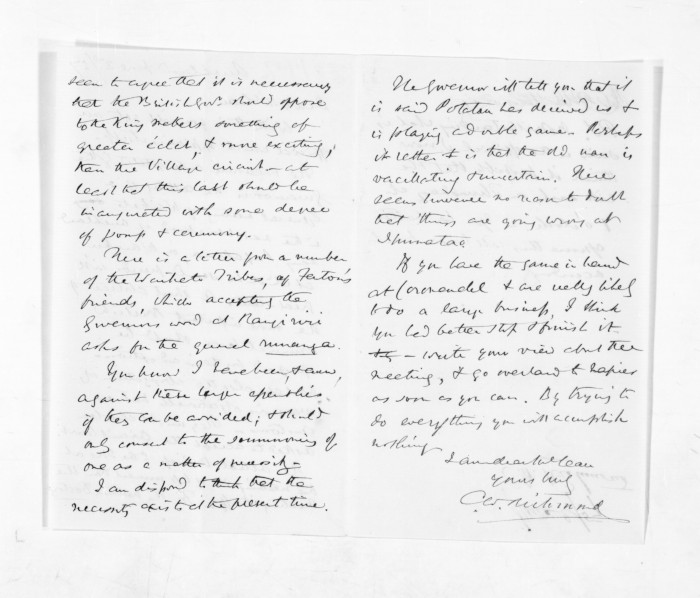 seem to agree that it is necessary
that the British Govt. should oppose
to the King makers something of
greater éclat, & more exciting,
than the Village circuit – at
least that this last should be
inaugurated with some degree
of pomp & ceremony.
There is a letter from a number
of the Waikato Tribes, of Fenton's
friends, which accepting the
Governor's word at Rangiriri
asks for the general runanga.
You know I have been, & am,
against these large assemblies
if they can be avoided; & should
only consent to the summoning of
one as a matter of necessity –
I am disposed to think that the
necessity exists at the present time.
The Governor will tell you that it
is said Potatau has deceived us &
is playing a double game. Perhaps
is that the old man is
vacillating & uncertain. There
seems however no reason to doubt
that things are going wrong at
If you have the game in hand
at Coromandel & are really likely
to do a large business, I think
you had better stop & finish it
– write your view about the
meeting, & go overland to Napier
as soon as you can. By trying to
do everything you will accomplish
nothing
I am dear McLean
yours truly
C.W. Richmond